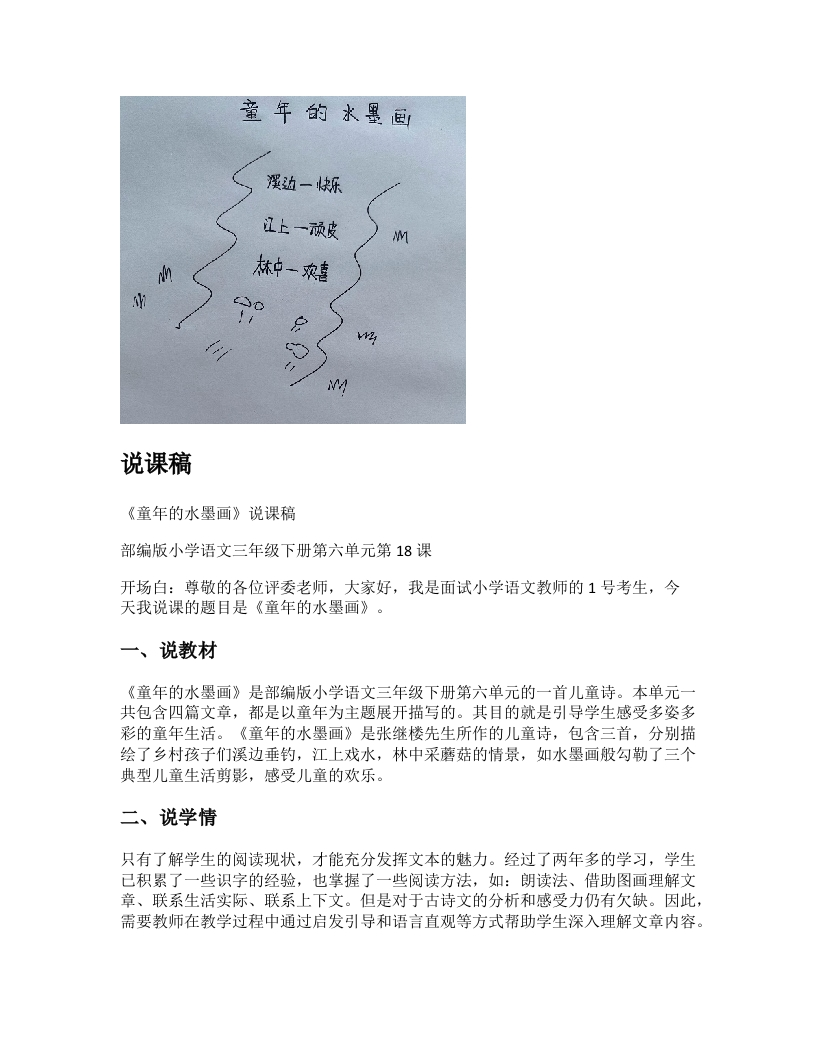 童年的水墨画
溪边一快乐
江上一顽皮
林中一欢喜
说课稿
《童年的水墨画》说课稿
部编版小学语文三年级下册第六单元第 18 课
开场白：尊敬的各位评委老师，大家好，我是面试小学语文教师的 1 号考生，今
天我说课的题目是《童年的水墨画》。
一、说教材
《童年的水墨画》是部编版小学语文三年级下册第六单元的一首儿童诗。本单元一
共包含四篇文章，都是以童年为主题展开描写的。其目的就是引导学生感受多姿多
彩的童年生活。《童年的水墨画》是张继楼先生所作的儿童诗，包含三首，分别描
绘了乡村孩子们溪边垂钓，江上戏水，林中采蘑菇的情景，如水墨画般勾勒了三个
典型儿童生活剪影，感受儿童的欢乐。
二、说学情
只有了解学生的阅读现状，才能充分发挥文本的魅力。经过了两年多的学习，学生
已积累了一些识字的经验，也掌握了一些阅读方法，如：朗读法、借助图画理解文
章、联系生活实际、联系上下文。但是对于古诗文的分析和感受力仍有欠缺。因此，
需要教师在教学过程中通过启发引导和语言直观等方式帮助学生深入理解文章内容。